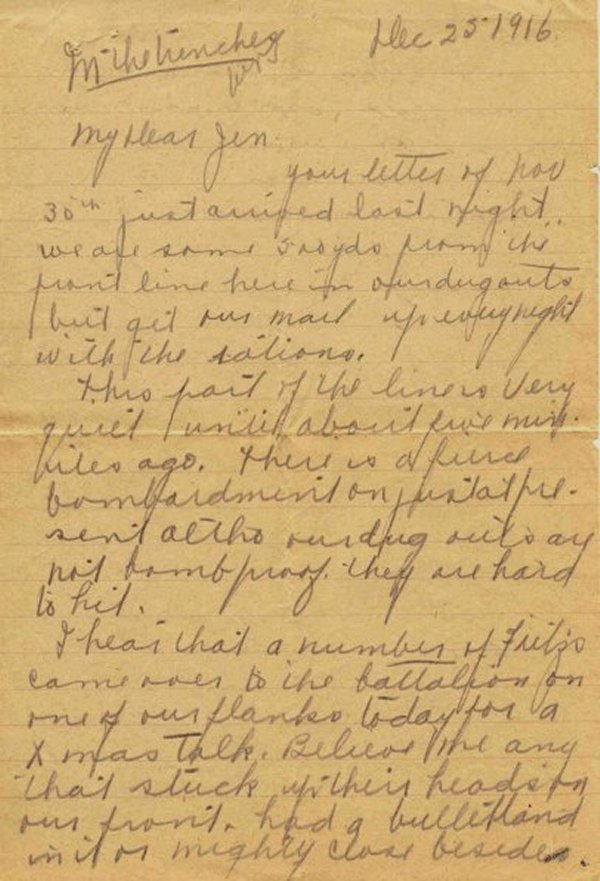 In the trenches
Dec 25 1916.
My Dear Jen
your letter of Nov
30th just arrived last night.
we are some 500 yds from the
front line here in our dugouts
but get our mail up every night
with the rations.
This part of the line is very
quiet until about five min-
utes ago. There is a fierce
bombardment on just at pre-
sent altho our dug outs are
not bomb proof. they are hard
to hit.
I hear that a number of Fritz's
came over to the battalion on
one of our flanks today for a
Xmas talk. Believe me any
that stuck up their heads on
our front. had a bullet land
in it or mighty close besides.